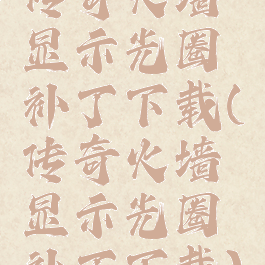 传奇火墙
显示光圈
补丁下载(
传奇火墙
显示光圈
补丁下载)